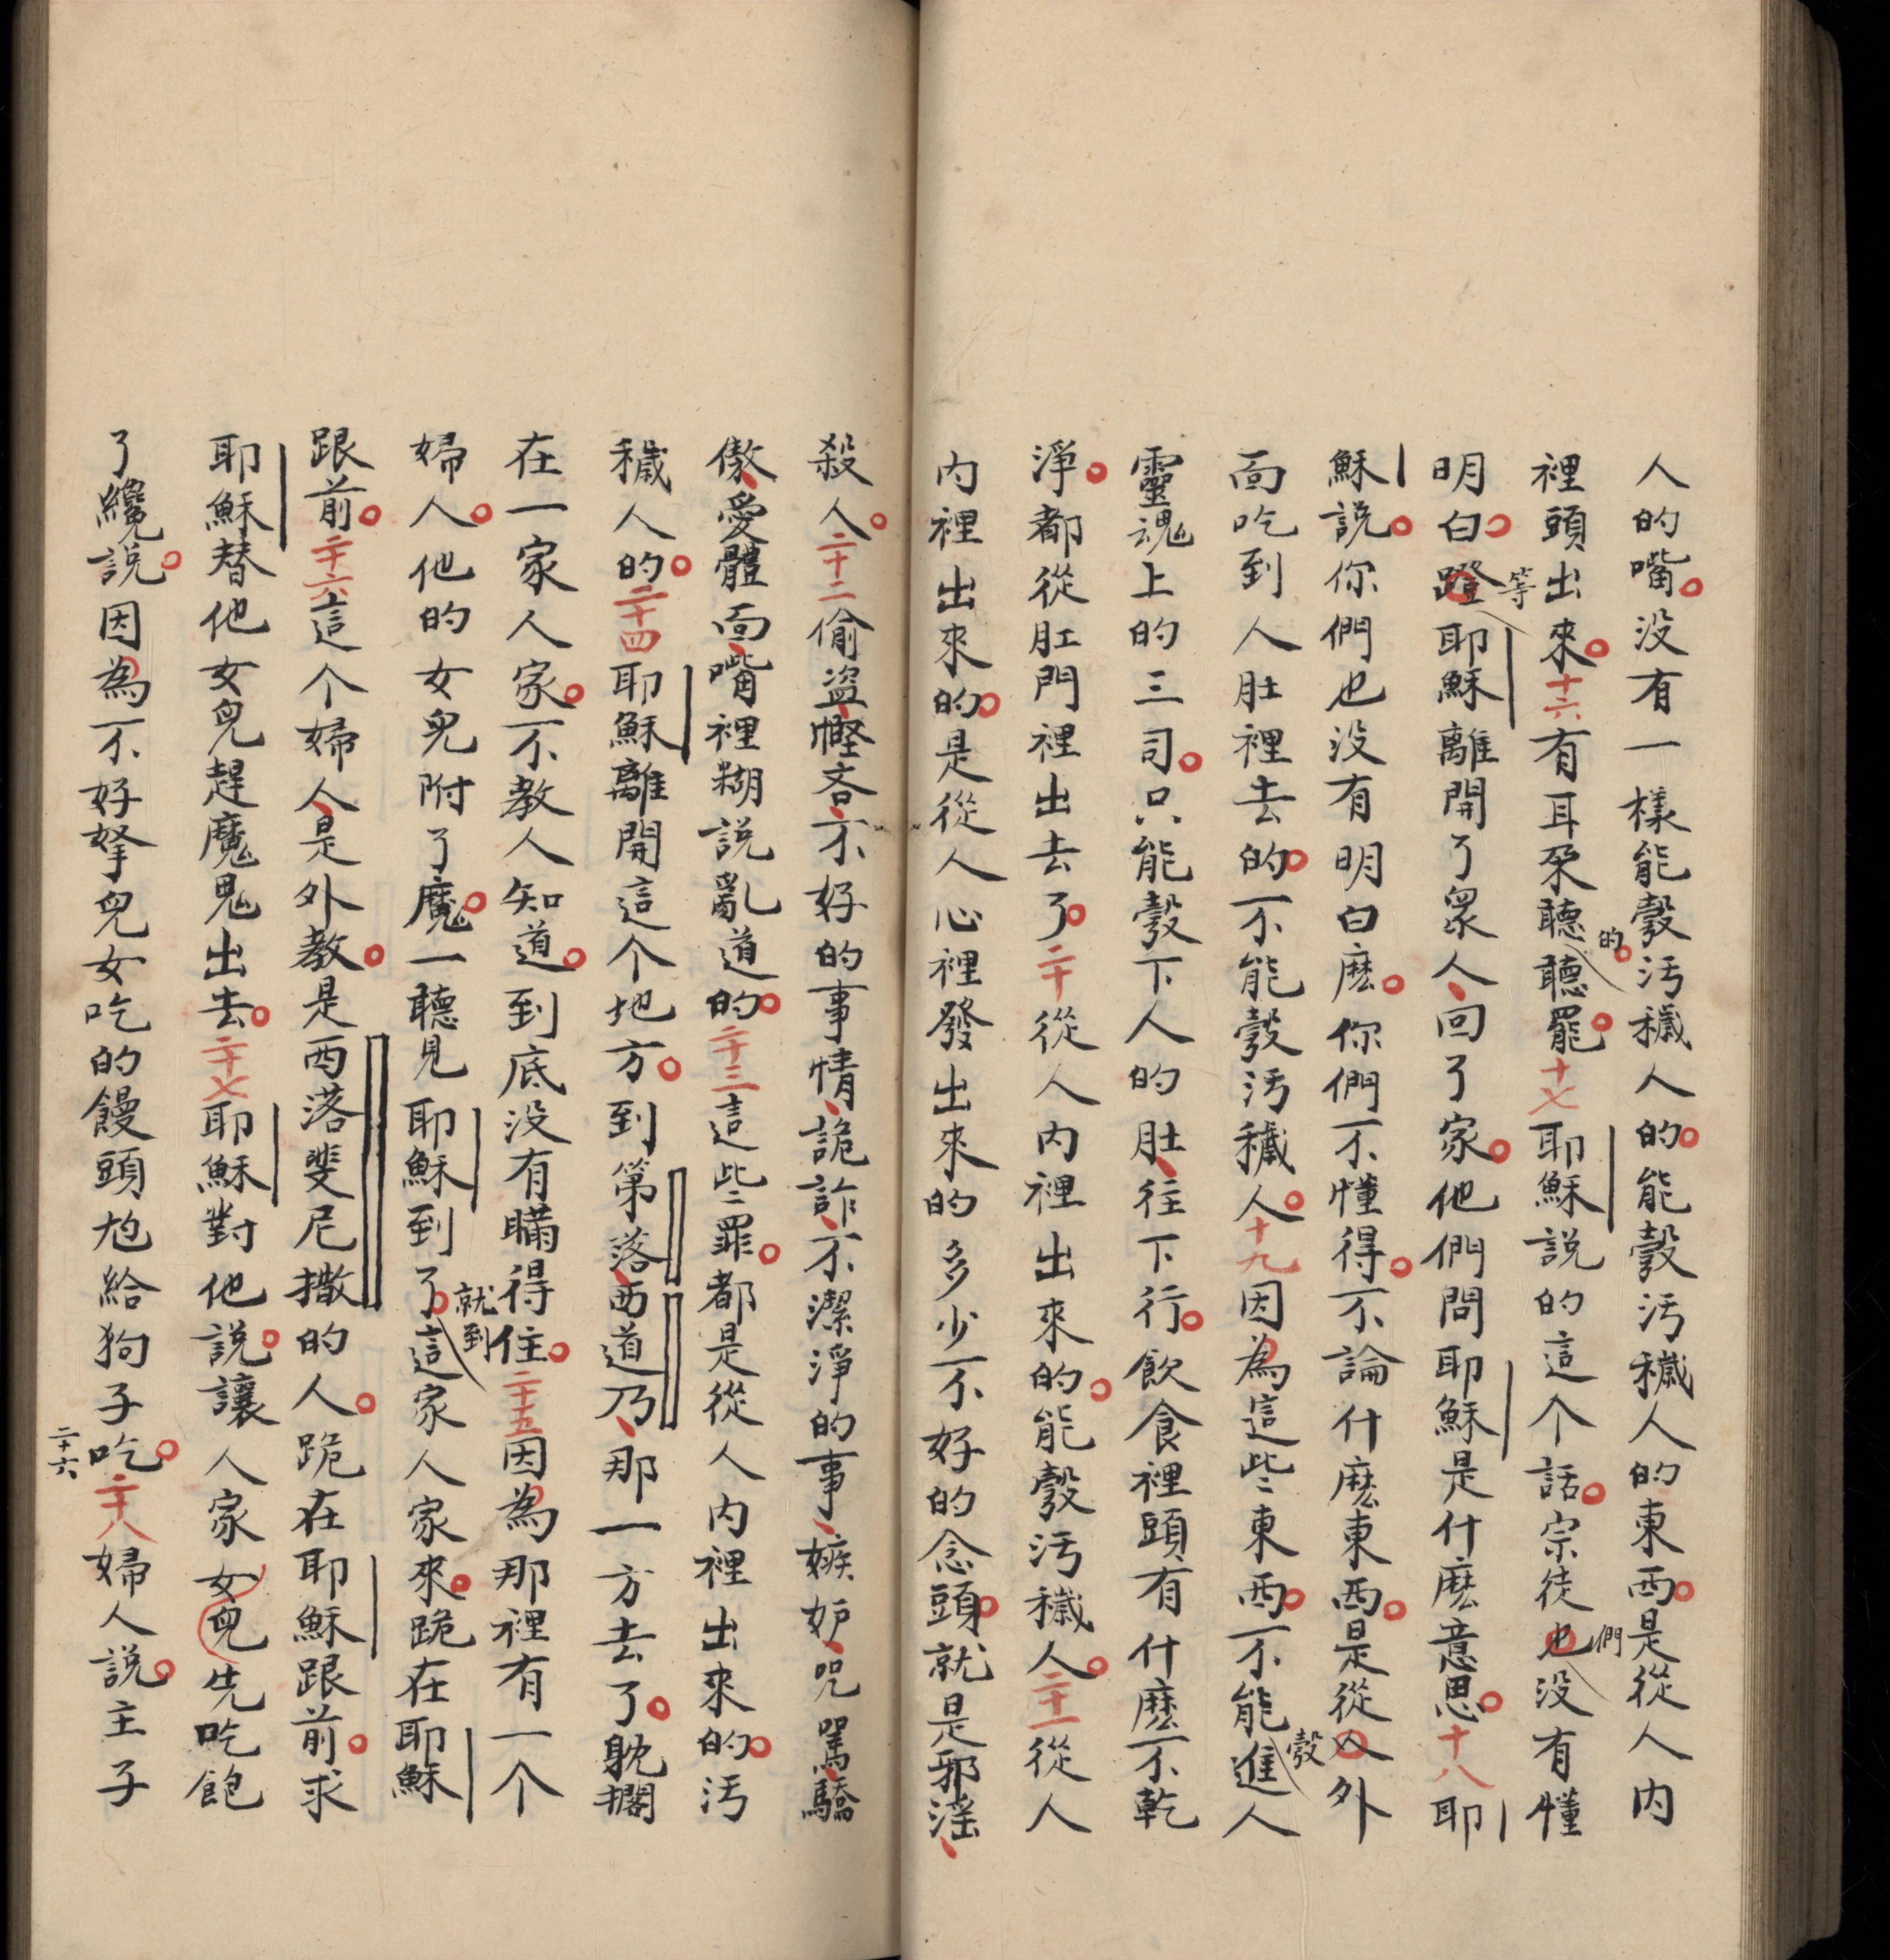 人的嘴。没有一樣能彀汚穢人的。能彀汚穢人的東西。是從人内
裡頭出來。十六有耳朶聽的聽罷。十七耶穌説的這个話。宗徒也們没有懂
明白。蹬等耶穌離開了衆人、回了家。他們問耶穌是什麽意思。十八耶
穌説。你們也没有明白麽。你們不懂得。不論什麽東西。是從人外
面吃到人肚裡去的。不能彀汚穢人。十九因為這些東西。不能彀進人
靈魂上的三司。只能彀下人的肚、往下行。飲食裡頭有什麽不乾
淨。都從肛門裡出去了。二十從人内裡出來的。能彀汚穢人。二十一從人
内裡出來的。是從人心裡發出來的多少不好的念頭。就是邪滛、
殺人。二十二偷盗、慳吝、不好的事情、詭詐、不潔淨的事、嫉妒、咒駡、驕
傲、愛體面、嘴裡糊説亂道的。二十三這些罪。都是從人内裡出來的。汚
穢人的。二十四耶穌離開這个地方。到第落、西道乃、那一方去了。躭擱
在一家人家。不教人知道。到底没有瞞得住。二十五因為那裡有一个
婦人。他的女兒附了魔。一聽見耶穌到了。就到這家人家來。跪在耶穌
跟前。二十六這个婦人、是外教。是西落斐尼撒的人。跪在耶穌跟前。求
耶穌替他女兒趕魔鬼出去。二十七耶穌對他説。讓人家女兒先吃飽
了纔説。因為不好拏兒女吃的饅頭尅給狗子吃。二十八婦人説。主子
二十六